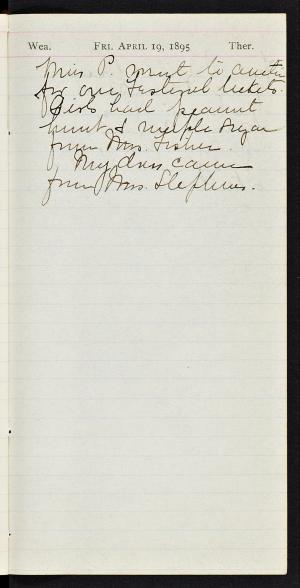 Wea. FRI. APRIL 19, 1895 Ther.
Miss P. went to
for our Festival tickets.
Girls had peanut
hunt & maple sugar
from Mrs. Fisher.
My dress came
from Mrs. Stephens.